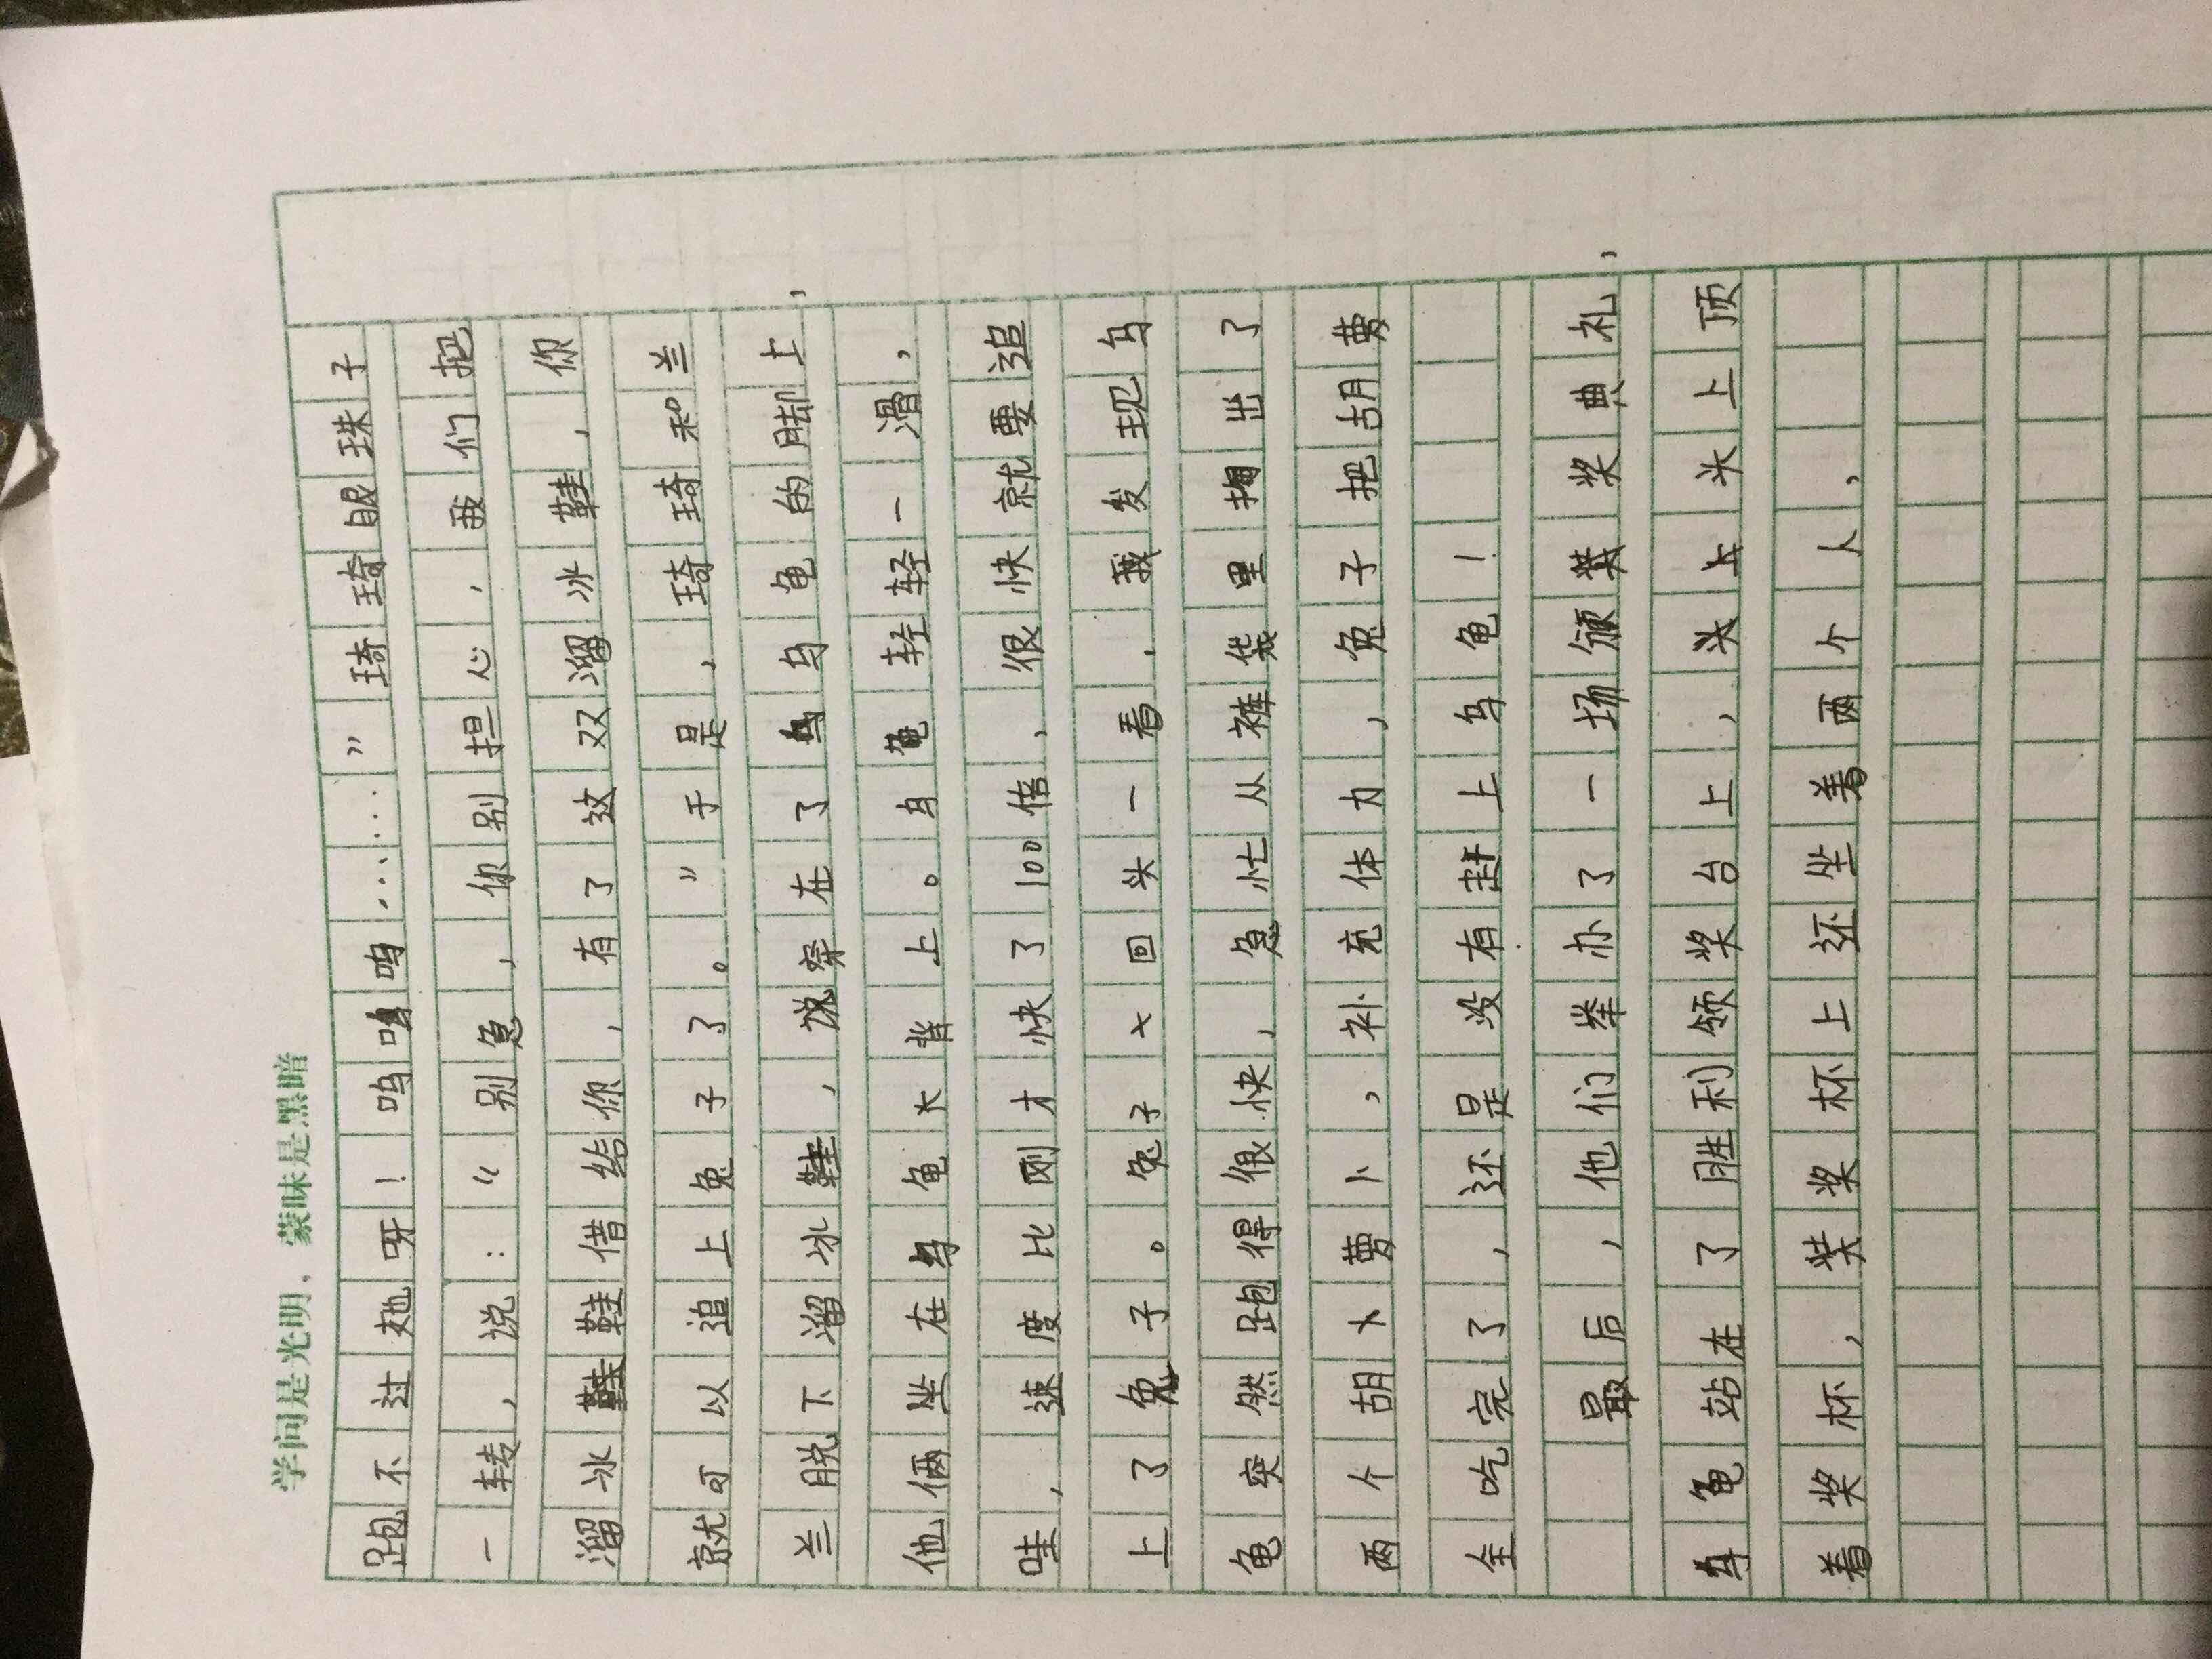 学问是光明，蒙昧是黑暗
跑不过她呀！呜呜呜……”琦琦眼珠子
一转，说：“别急，你别担心，我们把
溜冰鞋借给你，有了这双溜冰鞋，你
就可以追上兔子了。”于是，琦琦和兰
兰脱下溜冰鞋，穿在了乌龟的脚上，
他俩坐在乌龟大背上。乌龟轻轻一滑，
哇，速度比刚才快了100倍，很快就要追
上了兔子。兔子大回头一看，我发现乌
龟突然跑得很快，急忙从裤袋里掏出了
两个胡萝卜，补充体力，兔子把胡萝
全吃完了，还是没有赶上乌龟！
最后，他们举办了一场颁奖典礼，
乌龟站在了胜利领奖台上，头上头上顶
着奖杯，奖杯上还坐着两个人，